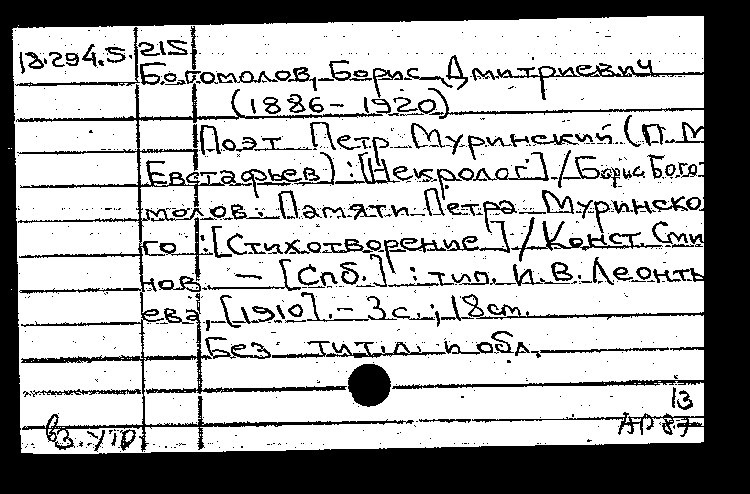 18.294.5.215
Богомолов, Борис Дмитриевич
(1886-1920)
Поэт Петр Муринский (П. М
Евстафьев) : [Некролог] / Борис Бого
молов. Памяти Петра Муринско
го : [Стихотворение] / Конст. Сми
нов. — [Спб.] : тип. И. В. Леонть
ева, [1910]. - 3 с. ; 18 см.
Без тит. л. и обл.
13
вз. утр. АР 87